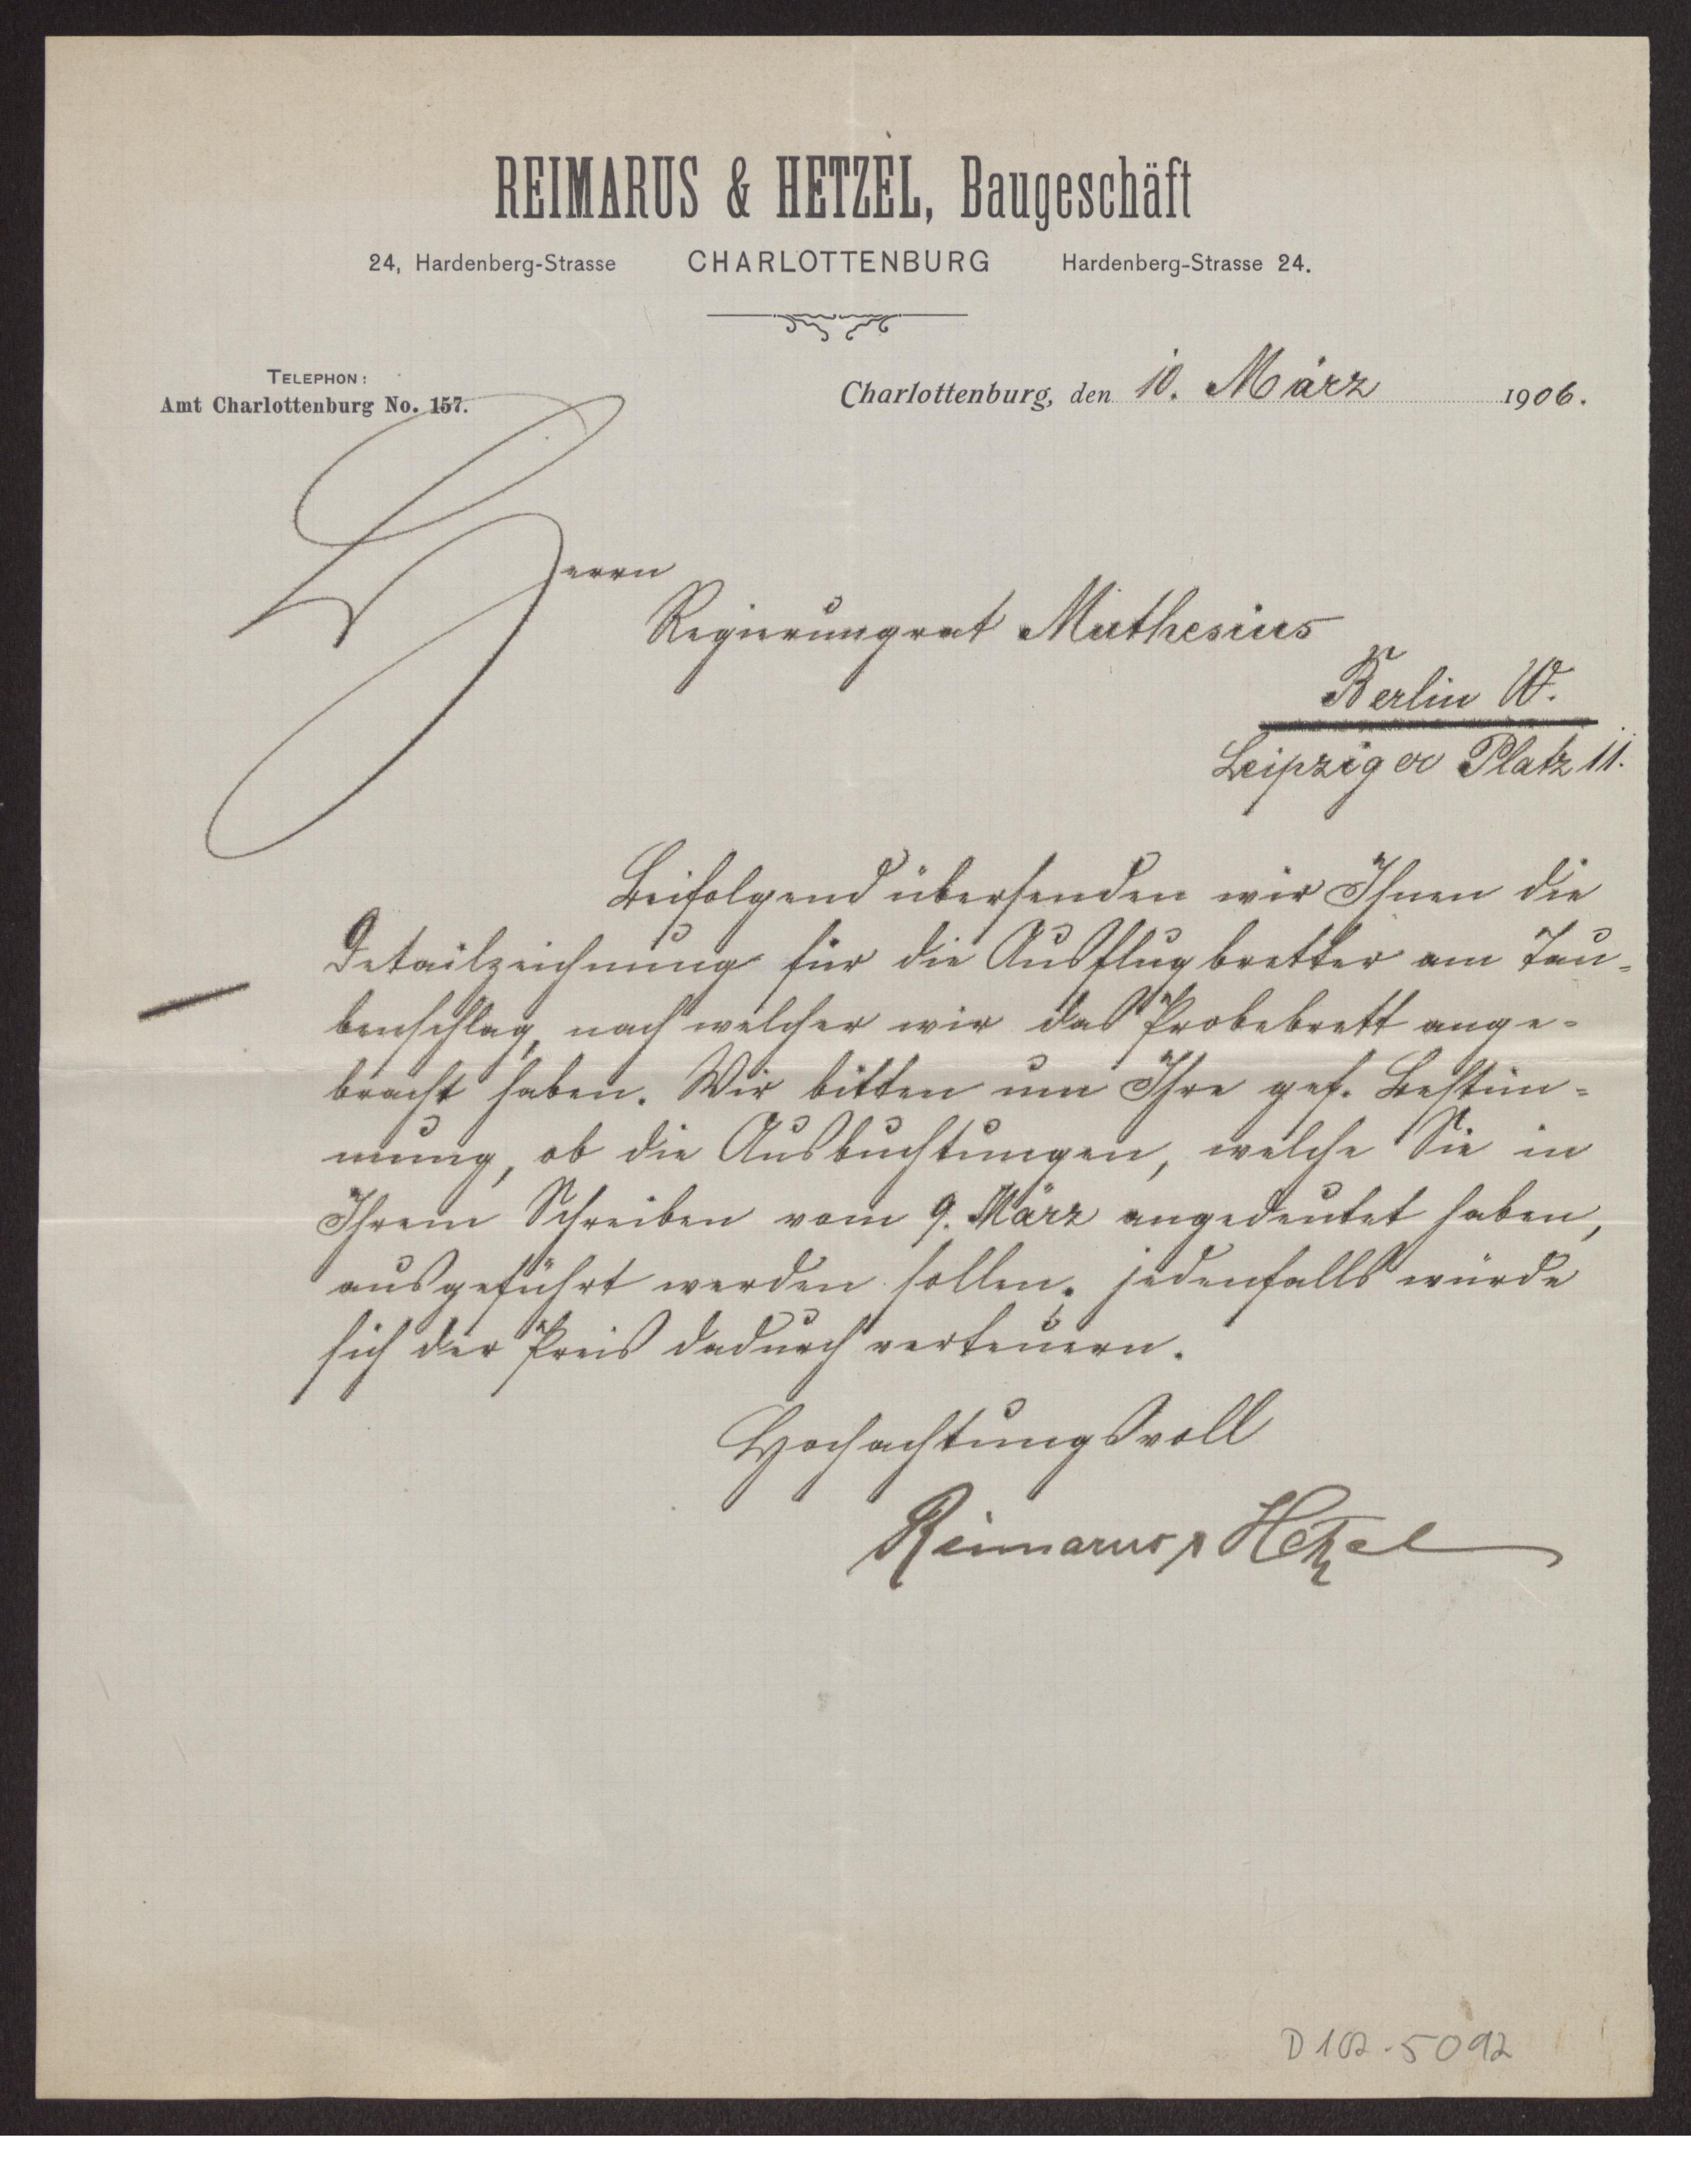 REIMARUS & HETZEL, Baugeschäft
24, Hardenberg-Strasse CHARLOTTENBURG Hardenberg-Strasse 24.
TELEPHON:
Amt Charlottenburg No. 157.
Charlottenburg, den 10. März 1906.
Herrn
Regierungrat Muthesius
Berlin W.
Leipziger Platz 11.
Beifolgend übersenden wir Ihnen die
Detailzeichnung für die Ausflugbretter am Tau-
benschlag, nach welcher wir das Probebrett ange-
bracht haben. Wir bitten um Ihre gef. Bestim-
mung, ob die Ausbuchtungen, welche Sie in
Ihrem Schreiben vom 9. März angedeutet haben,
ausgeführt werden sollen. jedenfalls würde
sich der Preis dadurch verteuern.
Hochachtungsvoll
Reimarus & Hetzel
D 102-5092